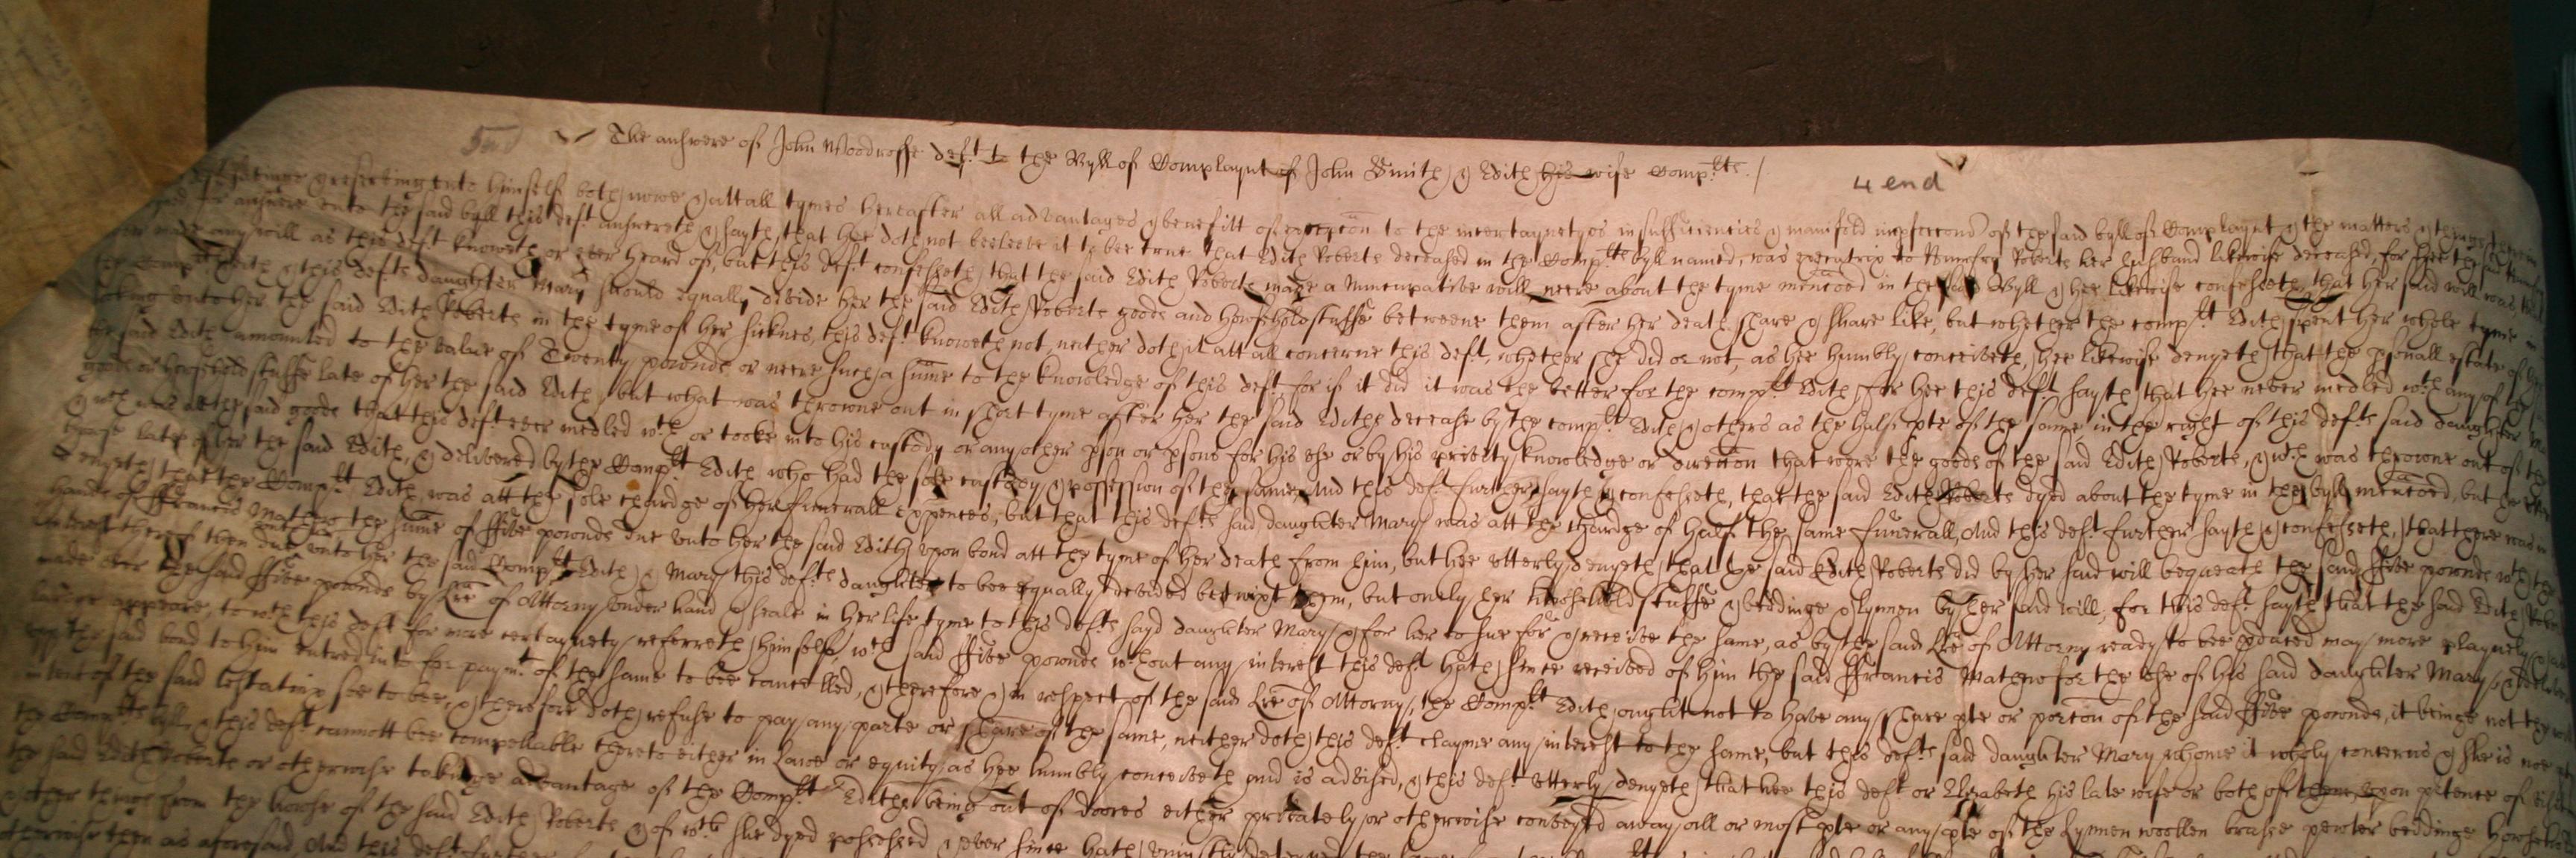 The answere of John Woodroffe deft to the Byll of Complaynt of John Smith & Edith his wife Complts /
4 end
savinge & reserving unto himself both nowe & att all tymes hereafter all advantages & benefitt of excepcon to the incertayneties insufficiencies & manifold imperfeccons of the said byll of Complaynt & the matters & thinges therein
for answere unto the said byll this deft answereth & sayth that hee doth not beeleeve it to bee true that Edith Roberts deceased in the Complts byll named, was executrix to Roberts her husband likewise deceased, for
made any will as this deft knoweth or ever heard of, but this deft confesseth that the said Edith Roberts made a Nuncupative will neere about the tyme mencoed in the said Byll & hee likewise confesseth that her said will was, that
the Complt Edith & this defts daughter Mary should equally divide her the said Edith Roberts goods and howsehold stuffe betweene them after her death share & share like, but whether the complt Edith spent her whole tyme in
looking unto her the said Edith Roberts in the tyme of her sicknes, this deft knoweth not, neither doth it att all concerne this deft, whether she did or not, as hee humbly conceiveth, hee likewise denyeth that the psonall estate of her
the said Edith amounted to the value of Twenty pownds or neere such a sume to the knowledge of this deft for if it did it was the better for the complt Edith for hee this deft sayth that hee never medled wth any of the
goods or howsehold stuffe late of her the said Edith, but what was throwne out in short tyme after her the said Ediths decease by the complt Edith & others as the halfe pte of the same in the right of this defts said daughter Mary
& wch was all the said goods that this deft ever medled wth or tooke into his custody or any other pson or psons for his use or by his privity knowledge or direccon that were the goods of the said Edith Roberts, & wch was throwne out of the
howse late of her the said Edith, & delivered by the Complt Edith who had the sole custody & possession of the same, And this deft further sayth & confesseth, that the said Edith Roberts dyed about the tyme in the byll mencoed, but hee
denyeth that the Complt Edith was att the sole chardge of her funerall expences, but that this defts said daughter Mary was att the chardge of half the same funerall, And this deft further sayth & confesseth, that there was in
hands of ffrancis Mathew the sume of ffive pownds due unto her the said Edith upon bond att the tyme of her death from him, but hee utterly denyeth that the said Edith Roberts did by her said will bequeath the said ffive pownds wth the
interest thereof then due unto her the said Complt Edith & Mary this defts daughter to bee equally devided betwixt them, but onely her howsehold stuffe & beddinge & lynnen by her said will, for this deft sayth that the said Edith Roberts
made over the said ffive pownds by Lre of Attorny under hand & seale in her life tyme to this defts sayd daughter Mary & for her to sue for & receive the same, as by the said Lre of Attorny ready to bee pduced may more playnely
appeare, to wch this deft for more certaynety referreth himself, wch said ffive pownds wthout any interest this deft hath since received of him the said ffrancis Mathew for the use of his said daughter Mary, & delivered
upp the said bond to him entred into for paymt of the same to bee cancelled, & therefore & in respect of the said Lre of Attorny, the Complt Edith ought not to have any share pte or porcon of the said ffive pownds, it beinge not the
intent of the said testatrix soe to bee, & therefore doth refuse to pay any parte or share of the same, neither doth this deft clayme any interest to the same, but this defts said daughter Mary whome it wholy concerns & she is noe
the Complts byll, & this deft cannott bee compellable thereto either in Lawe or equity as hee humbly conceiveth and is advised, & this deft utterly denyeth that hee this deft or Elizabeth his late wife or both of them, upon ptence of
the said Edith Roberts or otherwise takinge advantage of the Complt Ediths being out of doores either privately or otherwise conveyed away all or most pte or any pte of the lynnen woollen brasse pewter beddinge howsehold
other thinges from the howse of the said Edith Roberts & of wch she dyed possessed & ever since hath unjustly detayned the
otherwise then as aforesaid And this deft further